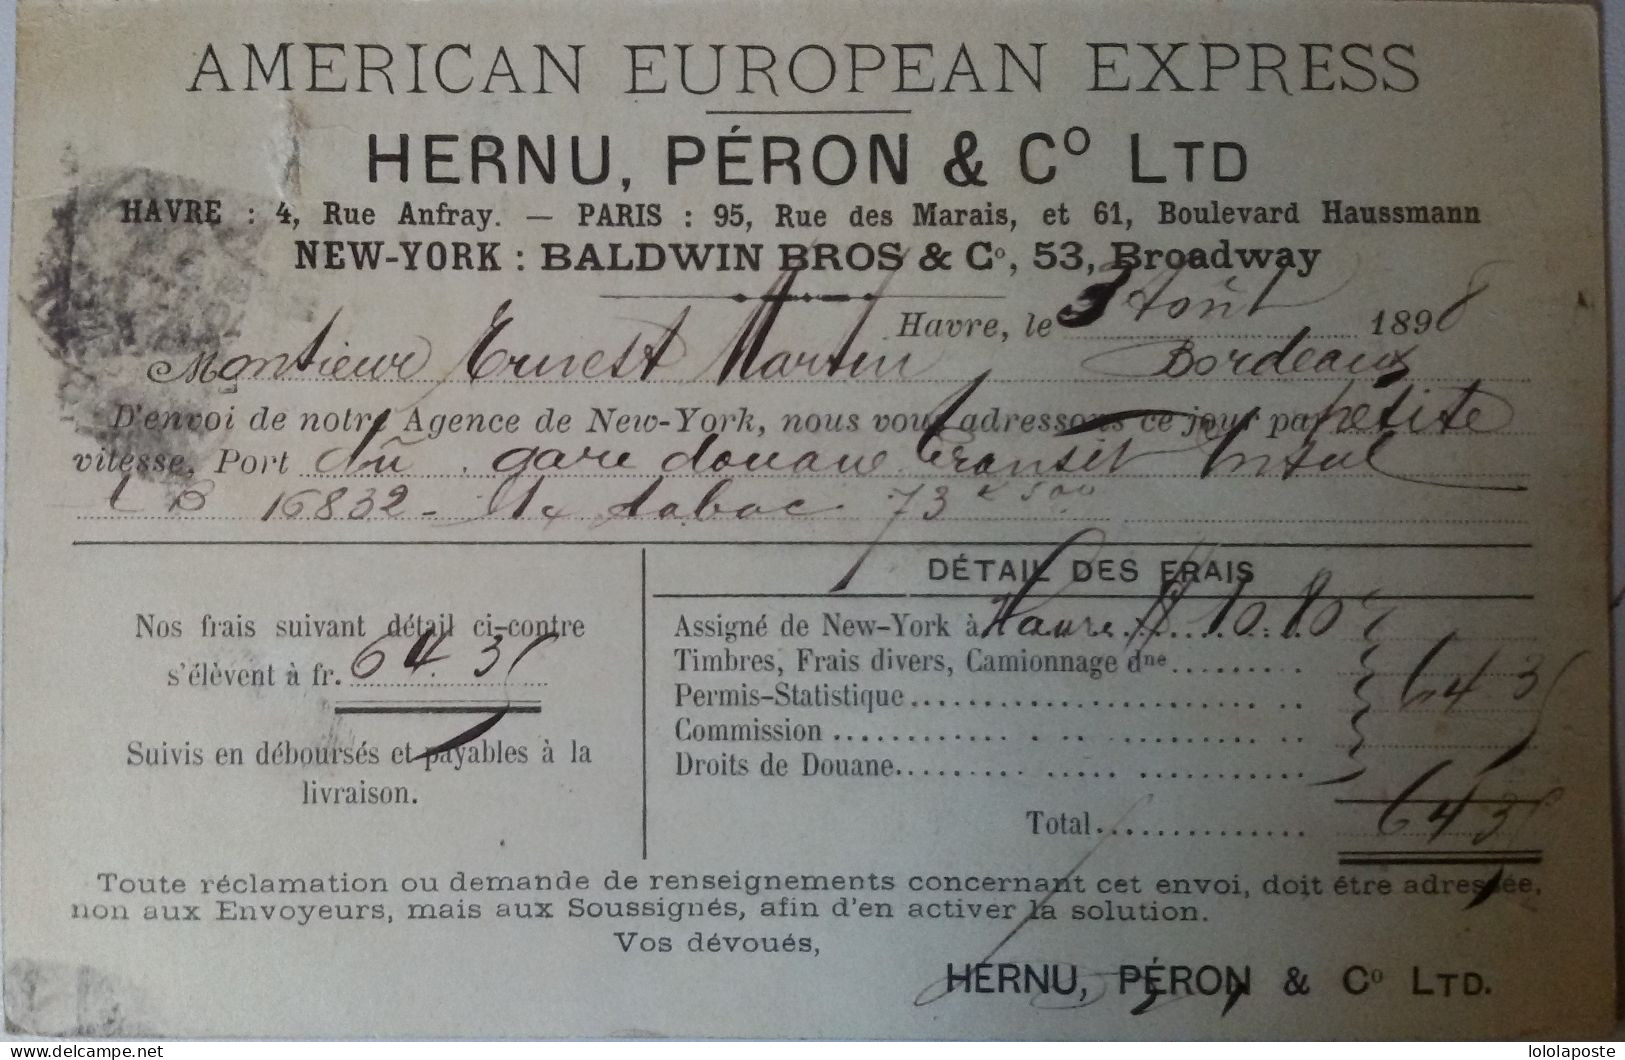 AMERICAN EUROPEAN EXPRESS
HERNU, PÉRON & Cº LTD
HAVRE : 4, Rue Anfray. — PARIS : 95, Rue des Marais, et 61, Boulevard Haussmann
NEW-YORK : BALDWIN BROS & Cº, 53, Broadway
Havre, le 3 Août 1898
Monsieur Ernest Martin Bordeaux
D'envoi de notre Agence de New-York, nous vous adressons ce jour par petite
vitesse, Port dû gare douane transit
L B 16832 - tabac 73 k 500
DÉTAIL DES FRAIS
Nos frais suivant détail ci-contre
s'élèvent à fr. 64.35
Suivis en déboursés et payables à la
livraison.
Assigné de New-York à Havre $ 10.80
Timbres, Frais divers, Camionnage dne
Permis-Statistique 64 35
Commission
Droits de Douane
Total 64 35
Toute réclamation ou demande de renseignements concernant cet envoi, doit être adressée,
non aux Envoyeurs, mais aux Soussignés, afin d'en activer la solution.
Vos dévoués,
HERNU, PÉRON & Cº LTD.
delcampe.net
lololaposte